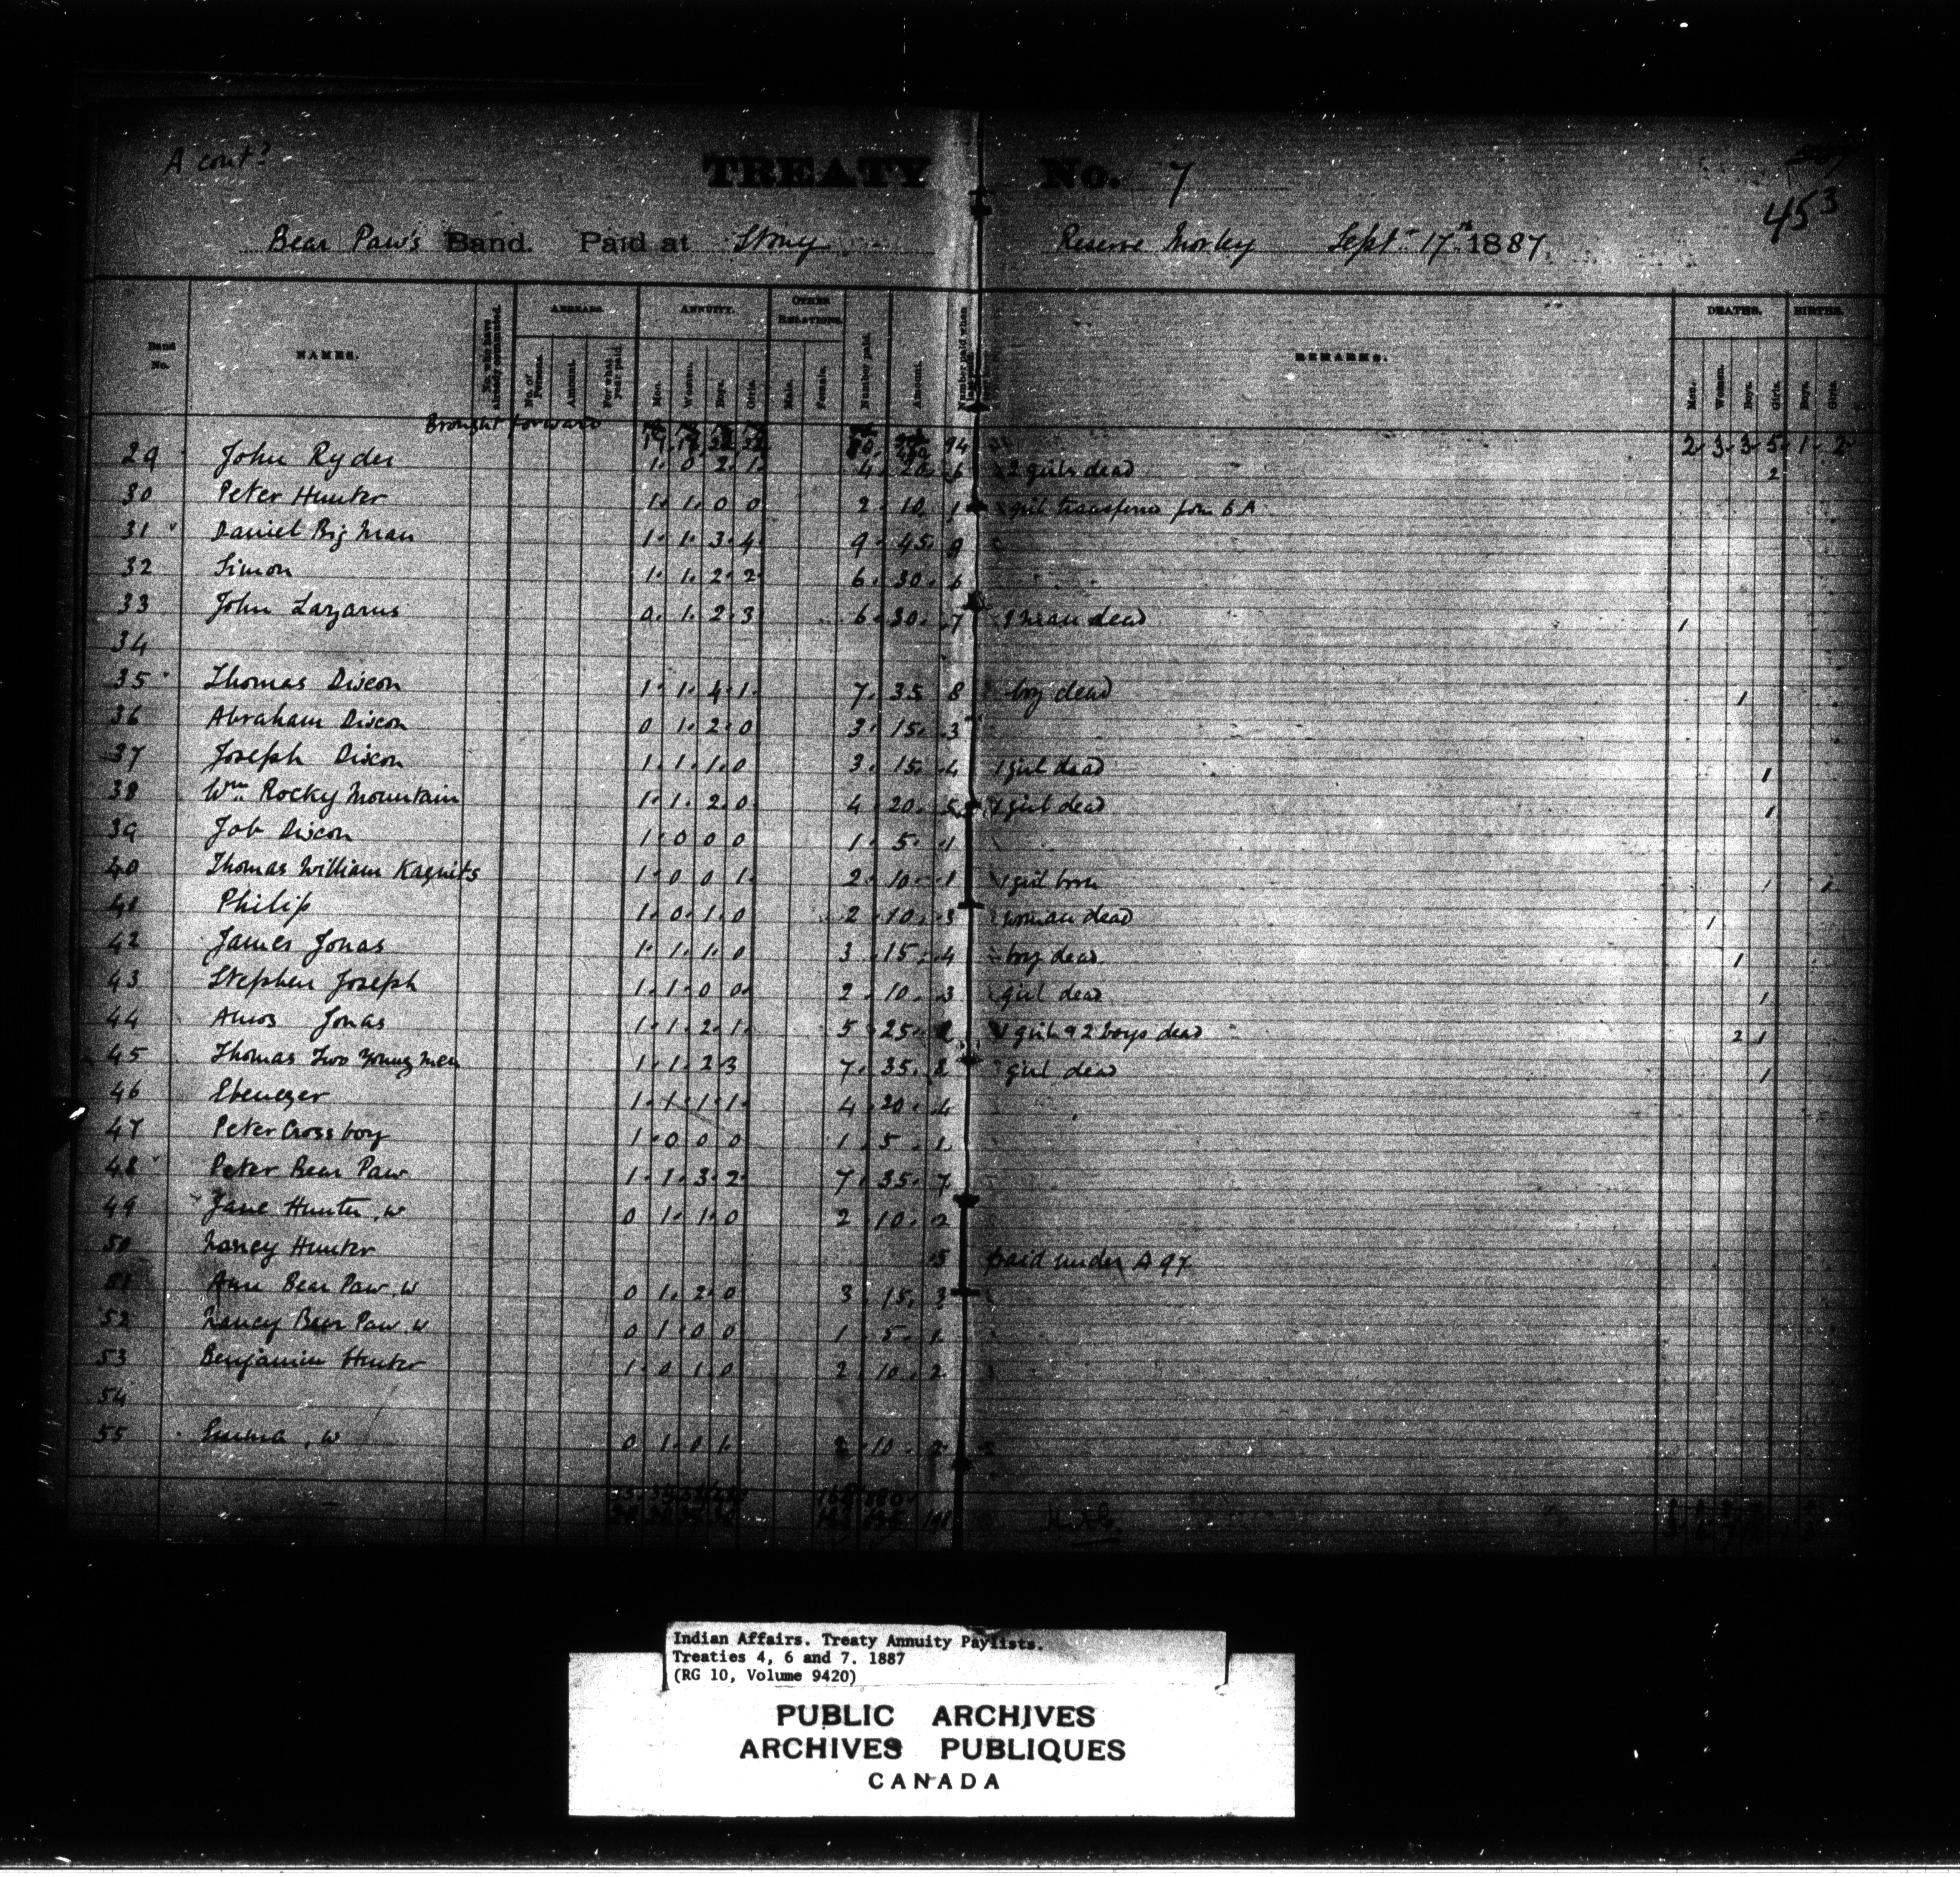 A cont^d
TREATY No. 7
453
Bear Paw's Band. Paid at Stony Reserve Morley Sept^r 17^th 1887
Band No. NAMES. No. who have already commuted. ARREARS. No. of Persons. Amount. For what year paid. ANNUITY. Men. Women. Boys. Girls. OTHER RELATIONS. Male. Female. Number paid. Amount. Number paid when REMARKS. DEATHS. Men. Women. Boys. Girls. BIRTHS. Boys. Girls.
Brought forward 94 2 3 3 5 1 2
29 John Ryder 1 0 2 1 4 20 6 2 girls dead 2
30 Peter Hunter 1 1 0 0 2 10 1 girl transferred from 6 A
31 Daniel Big Man 1 1 3 4 9 45 9
32 Simon 1 1 2 2 6 30 6
33 John Lazarus 0 1 2 3 6 30 7 1 man dead 1
34
35 Thomas Dixon 1 1 4 1 7 35 8 boy dead 1
36 Abraham Dixon 0 1 2 0 3 15 3
37 Joseph Dixon 1 1 1 0 3 15 4 1 girl dead 1
38 W^m Rocky Mountain 1 1 2 0 4 20 5 1 girl dead 1
39 Job Dixon 1 0 0 0 1 5 1
40 Thomas William Kaquits 1 0 0 1 2 10 1 1 girl born
41 Philip 1 0 1 0 2 10 3 woman dead 1
42 James Jonas 1 1 1 0 3 15 4 boy dead 1
43 Stephen Joseph 1 1 0 0 2 10 3 girl dead 1
44 Amos Jonas 1 1 2 1 5 25 1 girl & 2 boys dead 2 1
45 Thomas Two Young Men 1 1 2 3 7 35 8 girl dead 1
46 Ebenezer 1 1 1 1 4 20 4
47 Peter Cross boy 1 0 0 0 1 5 1
48 Peter Bear Paw 1 1 3 2 7 35 7
49 Jane Hunter, w 0 1 1 0 2 10 2
50 Nancy Hunter 5 paid under A 97
51 Ann Bear Paw, w 0 1 2 0 3 15 3
52 Nancy Bear Paw, w 0 1 0 0 1 5 1
53 Benjamin Hunter 1 0 1 0 2 10 2
54
55 Emma, w 0 1 0 1 2 10 2
Indian Affairs. Treaty Annuity Paylists.
Treaties 4, 6 and 7. 1887
(RG 10, Volume 9420)
PUBLIC ARCHIVES
ARCHIVES PUBLIQUES
CANADA